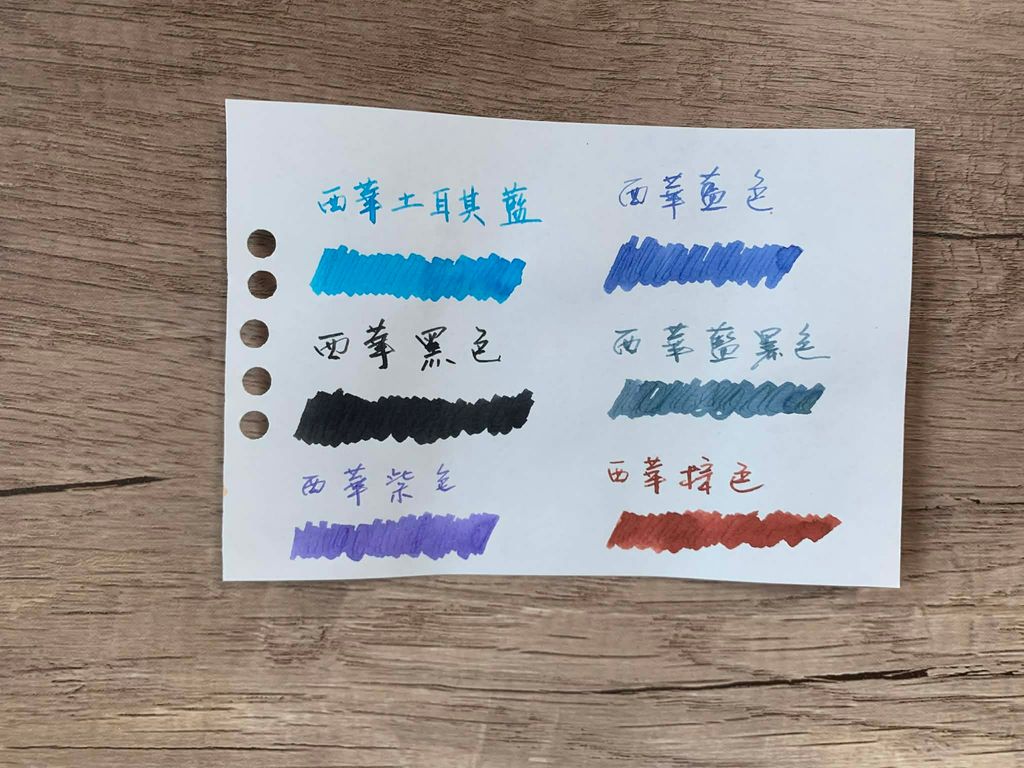 西華土耳其藍
西華藍色
西華黑色
西華藍黑色
西華紫色
西華棕色